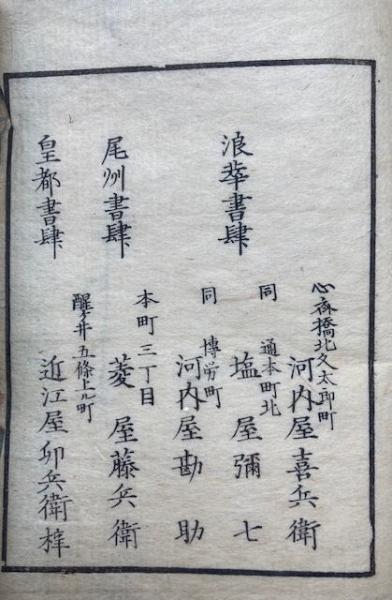 浪華書肆
心斎橋北久太郎町
河内屋喜兵衛
同 通本町北
塩屋彌七
同 博労町
河内屋勘助
尾州書肆
本町三丁目
菱屋藤兵衛
皇都書肆
醒ヶ井五條上ル町
近江屋卯兵衛梓